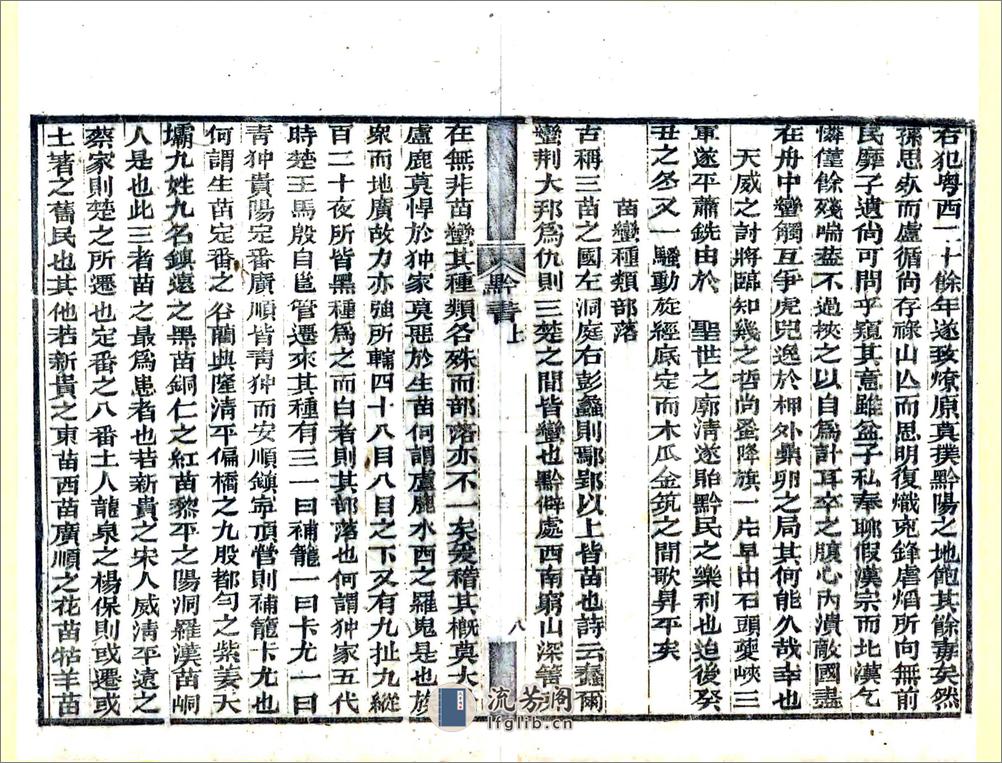 若犯粵西一十餘年遂致燎原莫撲黔陽之地飽其餘毒矣然
孫思欻而盧循尚存祿山亾而思明復熾克鋒虐熖所向無前
民靡孑遺尚可問乎窺其意雖盆子私奉聊假漢宗而北漢乞
憐僅餘殘喘葢不過挾之以自為計耳卒之腹心內潰敵國盡
在舟中蠻觸互爭虎兕逸於柙外鼎卵之局其何能久哉幸也
天威之討將臨知幾之哲尚蚤降旗一片早出石頭夔峽三
軍遂平蕭銑由於 聖世之廓清遂貽黔民之樂利也迨後癸
丑之冬又一騷動旋經底定而木瓜金筑之間歌昇平矣
苗蠻種類部落
古稱三苗之國左洞庭右彭蠡則鄢郢以上皆苗也詩云蠢爾
蠻荆大邦為仇則三楚之間皆蠻也黔僻處西南窮山深箐
黔書
上
八
在無非苗蠻其種類各殊而部落亦不一矣爰稽其概莫大
盧鹿莫悍於狆家莫惡於生苗何謂盧鹿水西之羅鬼是也族
衆而地廣故力亦強所轄四十八目八目之下又有九扯九縱
百二十夜所皆黑種為之而白者則其部落也何謂狆家五代
時楚王馬殷自邕管遷來其種有三一曰補籠一曰卡尤一曰
青狆貴陽定番廣順皆靑狆而安順鎮寧頂營則補籠卡尤也
何謂生苗定番之谷藺興隆清平偏橋之九股都勻之紫姜天
壩九姓九名鎮遠之黑苗銅仁之紅苗黎平之陽洞羅漢苗峒
人是也此三者苗之最為患者也若新貴之宋人威清平遠之
蔡家則楚之所遷也定番之八番土人龍泉之楊保則或遷或
土著之舊民也其他若新貴之東苗西苗廣順之花苗牯羊苗
流芳阁
lfglib.com